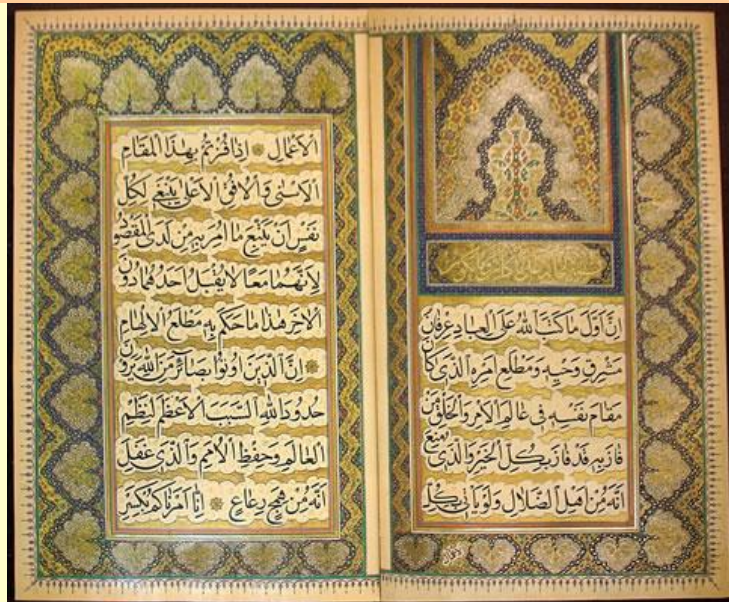 انّ اوّل ما كتب الله على العباد عرفان
مشرق وحيه ومطلع امره الذى كان
مقام نفسه فى عالم الامر والخلق من
فاز به قد فاز بكل الخير والذى منع
انّه من اهل الضلال ولو ياتى بكل
الاعمال ۞ اذا فزتم بهذا المقام
الاسنى والافق الاعلى ينبغى لكل
نفس ان يتبع ما امر به من لدى المقصود
لانّهما معا لا يقبل احدهما دون
الاخر هذا ما حكم به مطلع الالهام
۞ انّ الذين اوتوا بصائر من الله يرون
حدود الله السبب الاعظم لنظم
العالم وحفظ الامم والذى غفل
انّه من همج رعاع ۞ انّا امرناكم بكسر